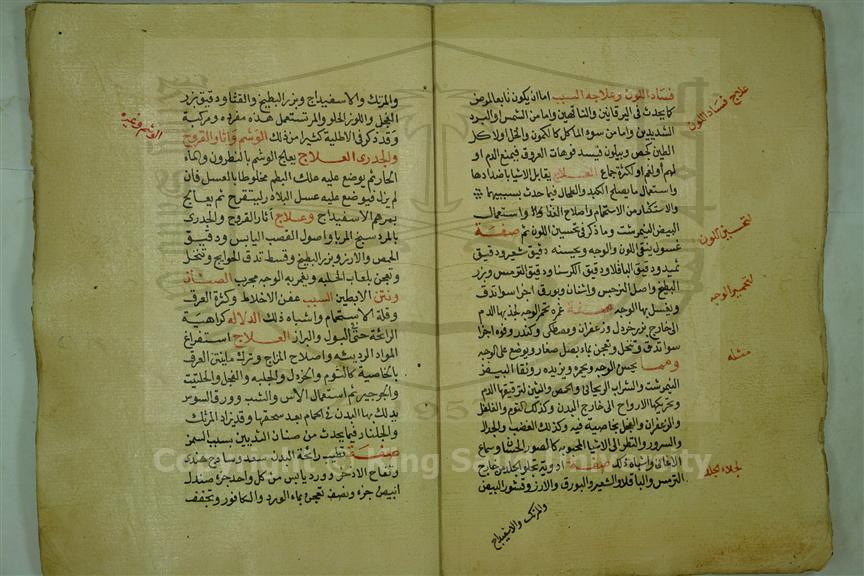 علاج فساد اللون
فساد اللون وعلاجه السبب اما ان يكون تابعا لمرض
كما يحدث في اليرقانين والناقهين واما من الشمس والبرد
الشديدين واما من سوء الماكل كالكمون والخل او لاكل
الطين كحمص وبيلون فيسد فوهات العروق فيمنع الدم او
لهم أو لغم او لكثرة جماع العلاج يقابل الاشيا باضدادها
واستعمال ما يصلح الكبد والطحال فيما حدث بسببهما
والاستكثار من الاستحمام واصلاح الغذا واستعمال
لتحسين اللون
البيض النيمرشت وما ذكر في تحسين اللون ثم صفة
غسول ينقي اللون والوجه ويحسنه دقيق شعير ودقيق
ثميد ودقيق الباقلا ودقيق الكرسنا ودقيق الترمس وبزر
البطيخ واصل النرجس واشنان وبورق اجزا سوا تدق
لتحمير الوجه
ويغسل بها الوجه صفة غمرة تحمر الوجه لجذبها الدم
الى خارج بزر خردل وزعفران ومصطكي وكندر وفوه اجزا
سوا تدق وتنخل وتعجن بماء بصل صغار ويوضع على الوجه
مثله
ومما يحسن الوجه ويحمره ويزيده رونقا البيض
النيمرشت والشراب الريحاني والحمص والتين لترقيقها الدم
وتحريكها الارواح الى خارج البدن وكذلك الثوم والفلفل
والزعفران والفجل بخاصية فيه وكذلك الغضب والجدال
والسرور والنظر الى الاشيا المحبوبه كالصور الحسنة وسماع
لجلاء الجلد
الاغاني واشباه ذلك صفة ادوية تجلو الجلد من خارج
الترمس والباقلا والشعير والبورق والارز وقشور البيض
والمرتك والاسفيداج
والمرتك والاسفيداج وبزر البطيخ والقثا ودقيق بزر
الفجل واللوز الحلو والمر تستعمل هذه مفرده ومركبة
الوشم وغيره
وقد ذكر في الاطلية كثيرا من ذلك الوشم واثار القروح
والجدرى العلاج يعالج الوشم بالنطرون والماء
الحار ثم يوضع عليه علك البطم مخلوطا بالعسل فان
لم يزل فيوضع عليه عسل البلادر ليتقرح ثم يعالج
بمرهم الاسفيداج وعلاج آثار القروح والجدرى
بالمرداسنج المربا واصول القصب اليابس ودقيق
الحمص والارز وبزر البطيخ وقسط تدق الحوايج وتنخل
وتعجن بلعاب الحلبه ويغمر به الوجه مجرب الصنان
ونتن الابطين السبب عفن الاخلاط وكثرة العرق
وقلة الاستحمام واشباه ذلك الدلاله كراهية
الرائحة حتى البول والبراز العلاج استفراغ
المواد الرديئه واصلاح المزاج وترك ما ينتن العرق
بالخاصية كالثوم والخردل والحلبه والفجل والحلتيت
والجرجير ثم استعمال الآس والشب وورق السوس
يدلك بها البدن في الحمام بعد سحقها وقد يزاد المرتك
والجلنار فيما يحدث من صنان الثديين بسبب السمن
صفة تطيب رائحة البدن سعد وسادج هندى
وتفاح الاذخر وورد يابس من كل واحد جزء صندل
ابيض جزء ونصف تعجن بماء الورد والكافور وتجفف
Copyright © King Saud University